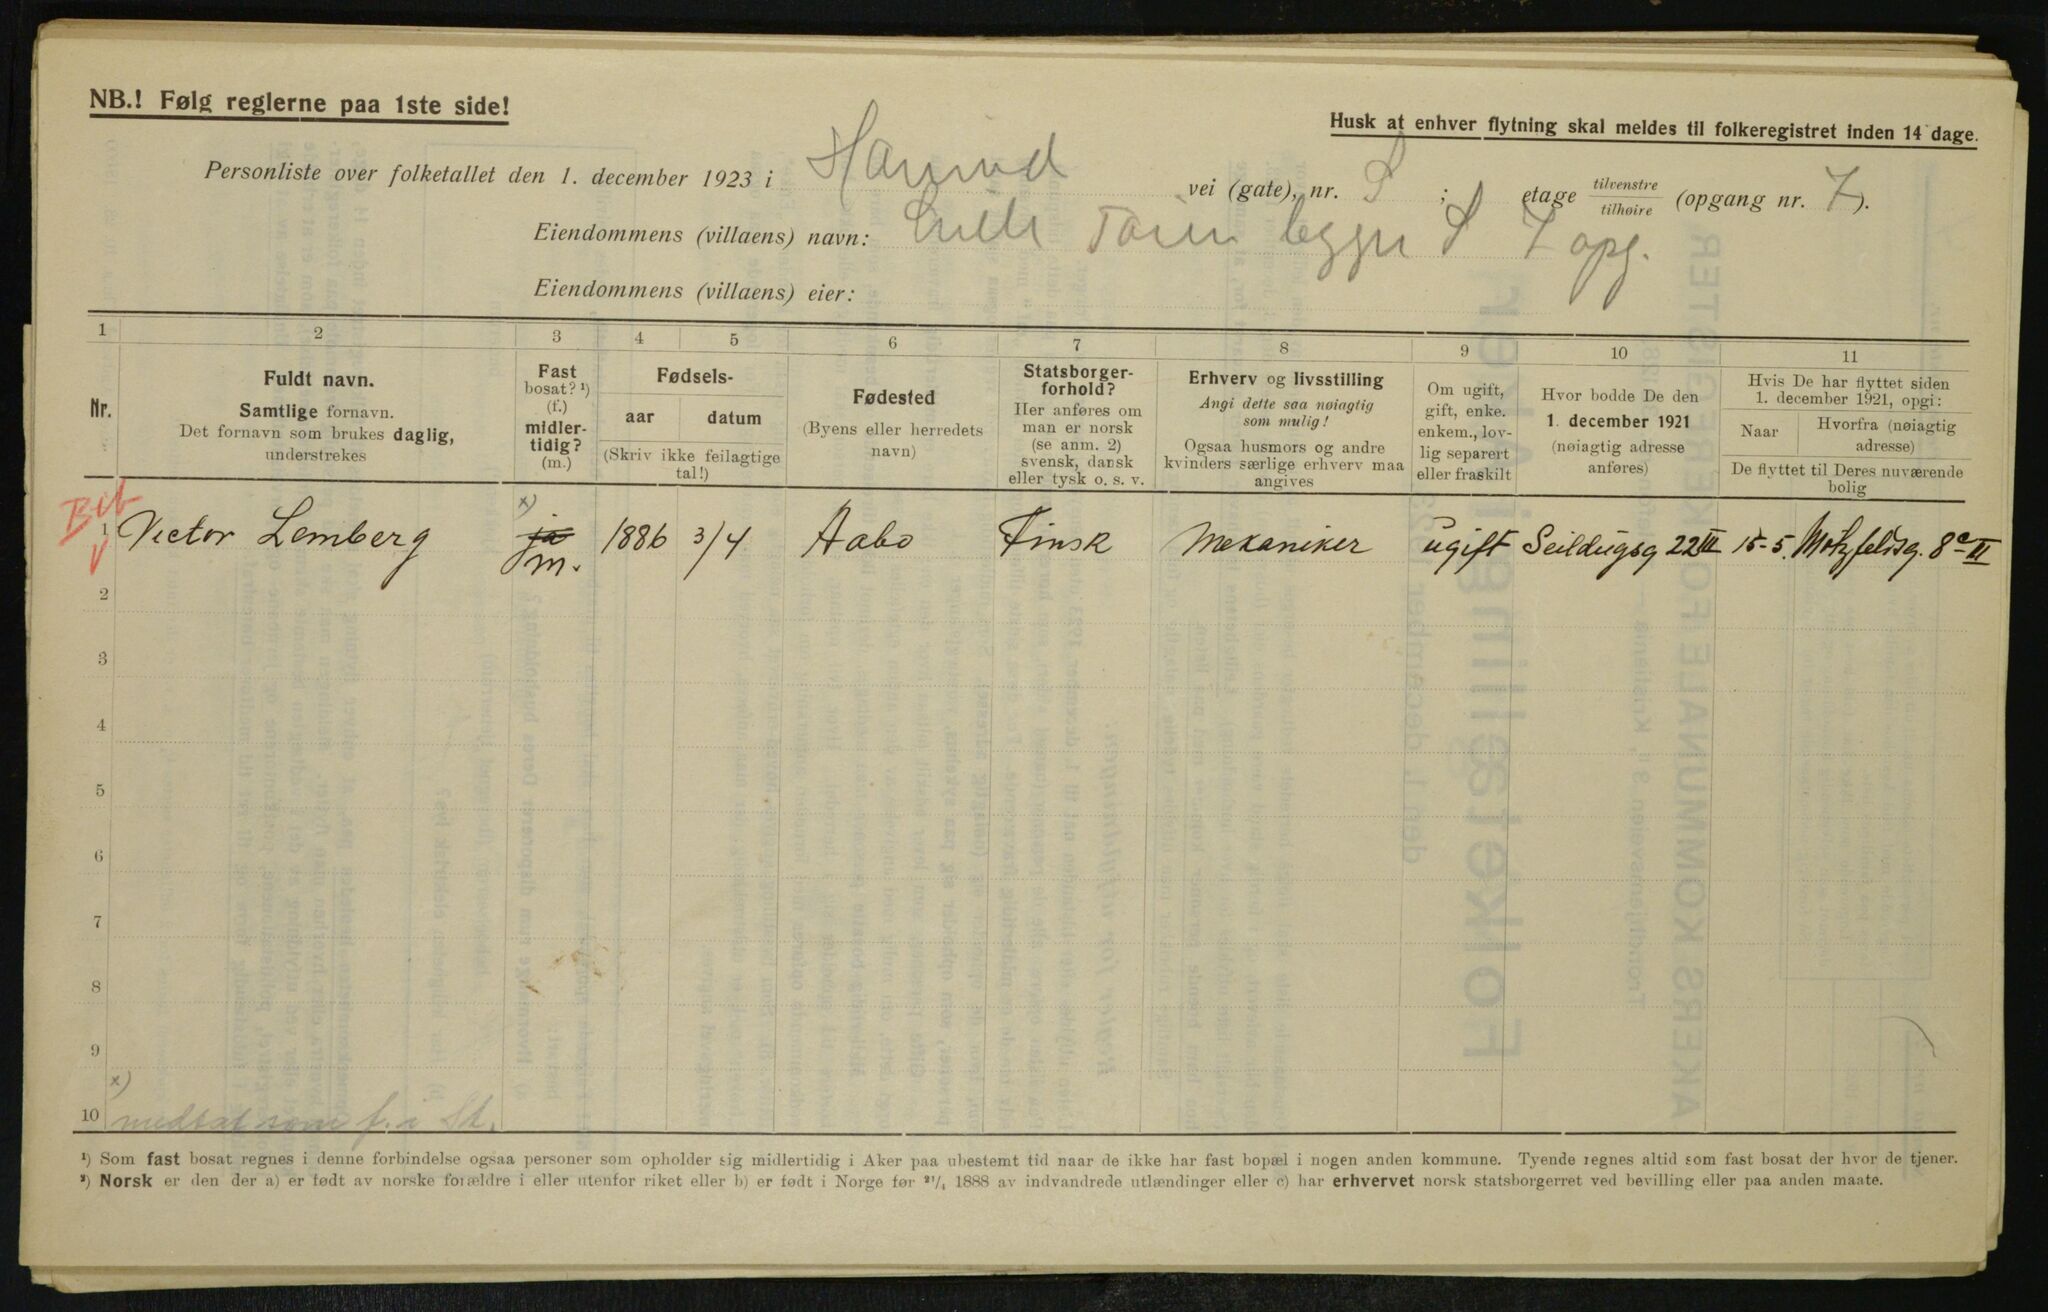 NB.! Følg reglerne paa 1ste side!
Husk at enhver flytning skal meldes til folkeregistret inden 14 dage.
Personliste over folketallet den 1. december 1923 i vei (gate), nr. S ; etage tilvenstre tilhøire (opgang nr. 7).
Eiendommens (villaens) navn: Lille Tøien S 7 opg.
Eiendommens (villaens) eier:
1 2 3 4 5 6 7 8 9 10 11
Nr.
Fuldt navn.
Samtlige fornavn.
Det fornavn som brukes daglig,
understrekes
Fast
bosat? ¹)
(f.)
midler-
tidig?
(m.)
Fødsels-
aar datum
(Skriv ikke feilagtige
tal!)
Fødested
(Byens eller herredets
navn)
Statsborger-
forhold?
Her anføres om
man er norsk
(se anm. 2)
svensk, dansk
eller tysk o. s. v.
Erhverv og livsstilling
Angi dette saa nøiagtig
som mulig!
Ogsaa husmors og andre
kvinders særlige erhverv maa
angives
Om ugift,
gift, enke.
enkem., lov-
lig separert
eller fraskilt
Hvor bodde De den
1. december 1921
(nøiagtig adresse
anføres)
Hvis De har flyttet siden
1. december 1921, opgi:
Naar
Hvorfra (nøiagtig
adresse)
De flyttet til Deres nuværende
bolig
x)
1 Victor Lemberg ja m. 1886 3/4 Aabo Finsk Mekaniker ugift Seildugsg 22 III 15-5. Motzfeldsg. 8c II
2
3
4
5
6
7
8
9
x)
10 medtat som f. i St.
¹) Som fast bosat regnes i denne forbindelse ogsaa personer som opholder sig midlertidig i Aker paa ubestemt tid naar de ikke har fast bopæl i nogen anden kommune. Tyende regnes altid som fast bosat der hvor de tjener.
²) Norsk er den der a) er født av norske forældre i eller utenfor riket eller b) er født i Norge før ²¹/₄ 1888 av indvandrede utlændinger eller c) har erhvervet norsk statsborgerret ved bevilling eller paa anden maate.